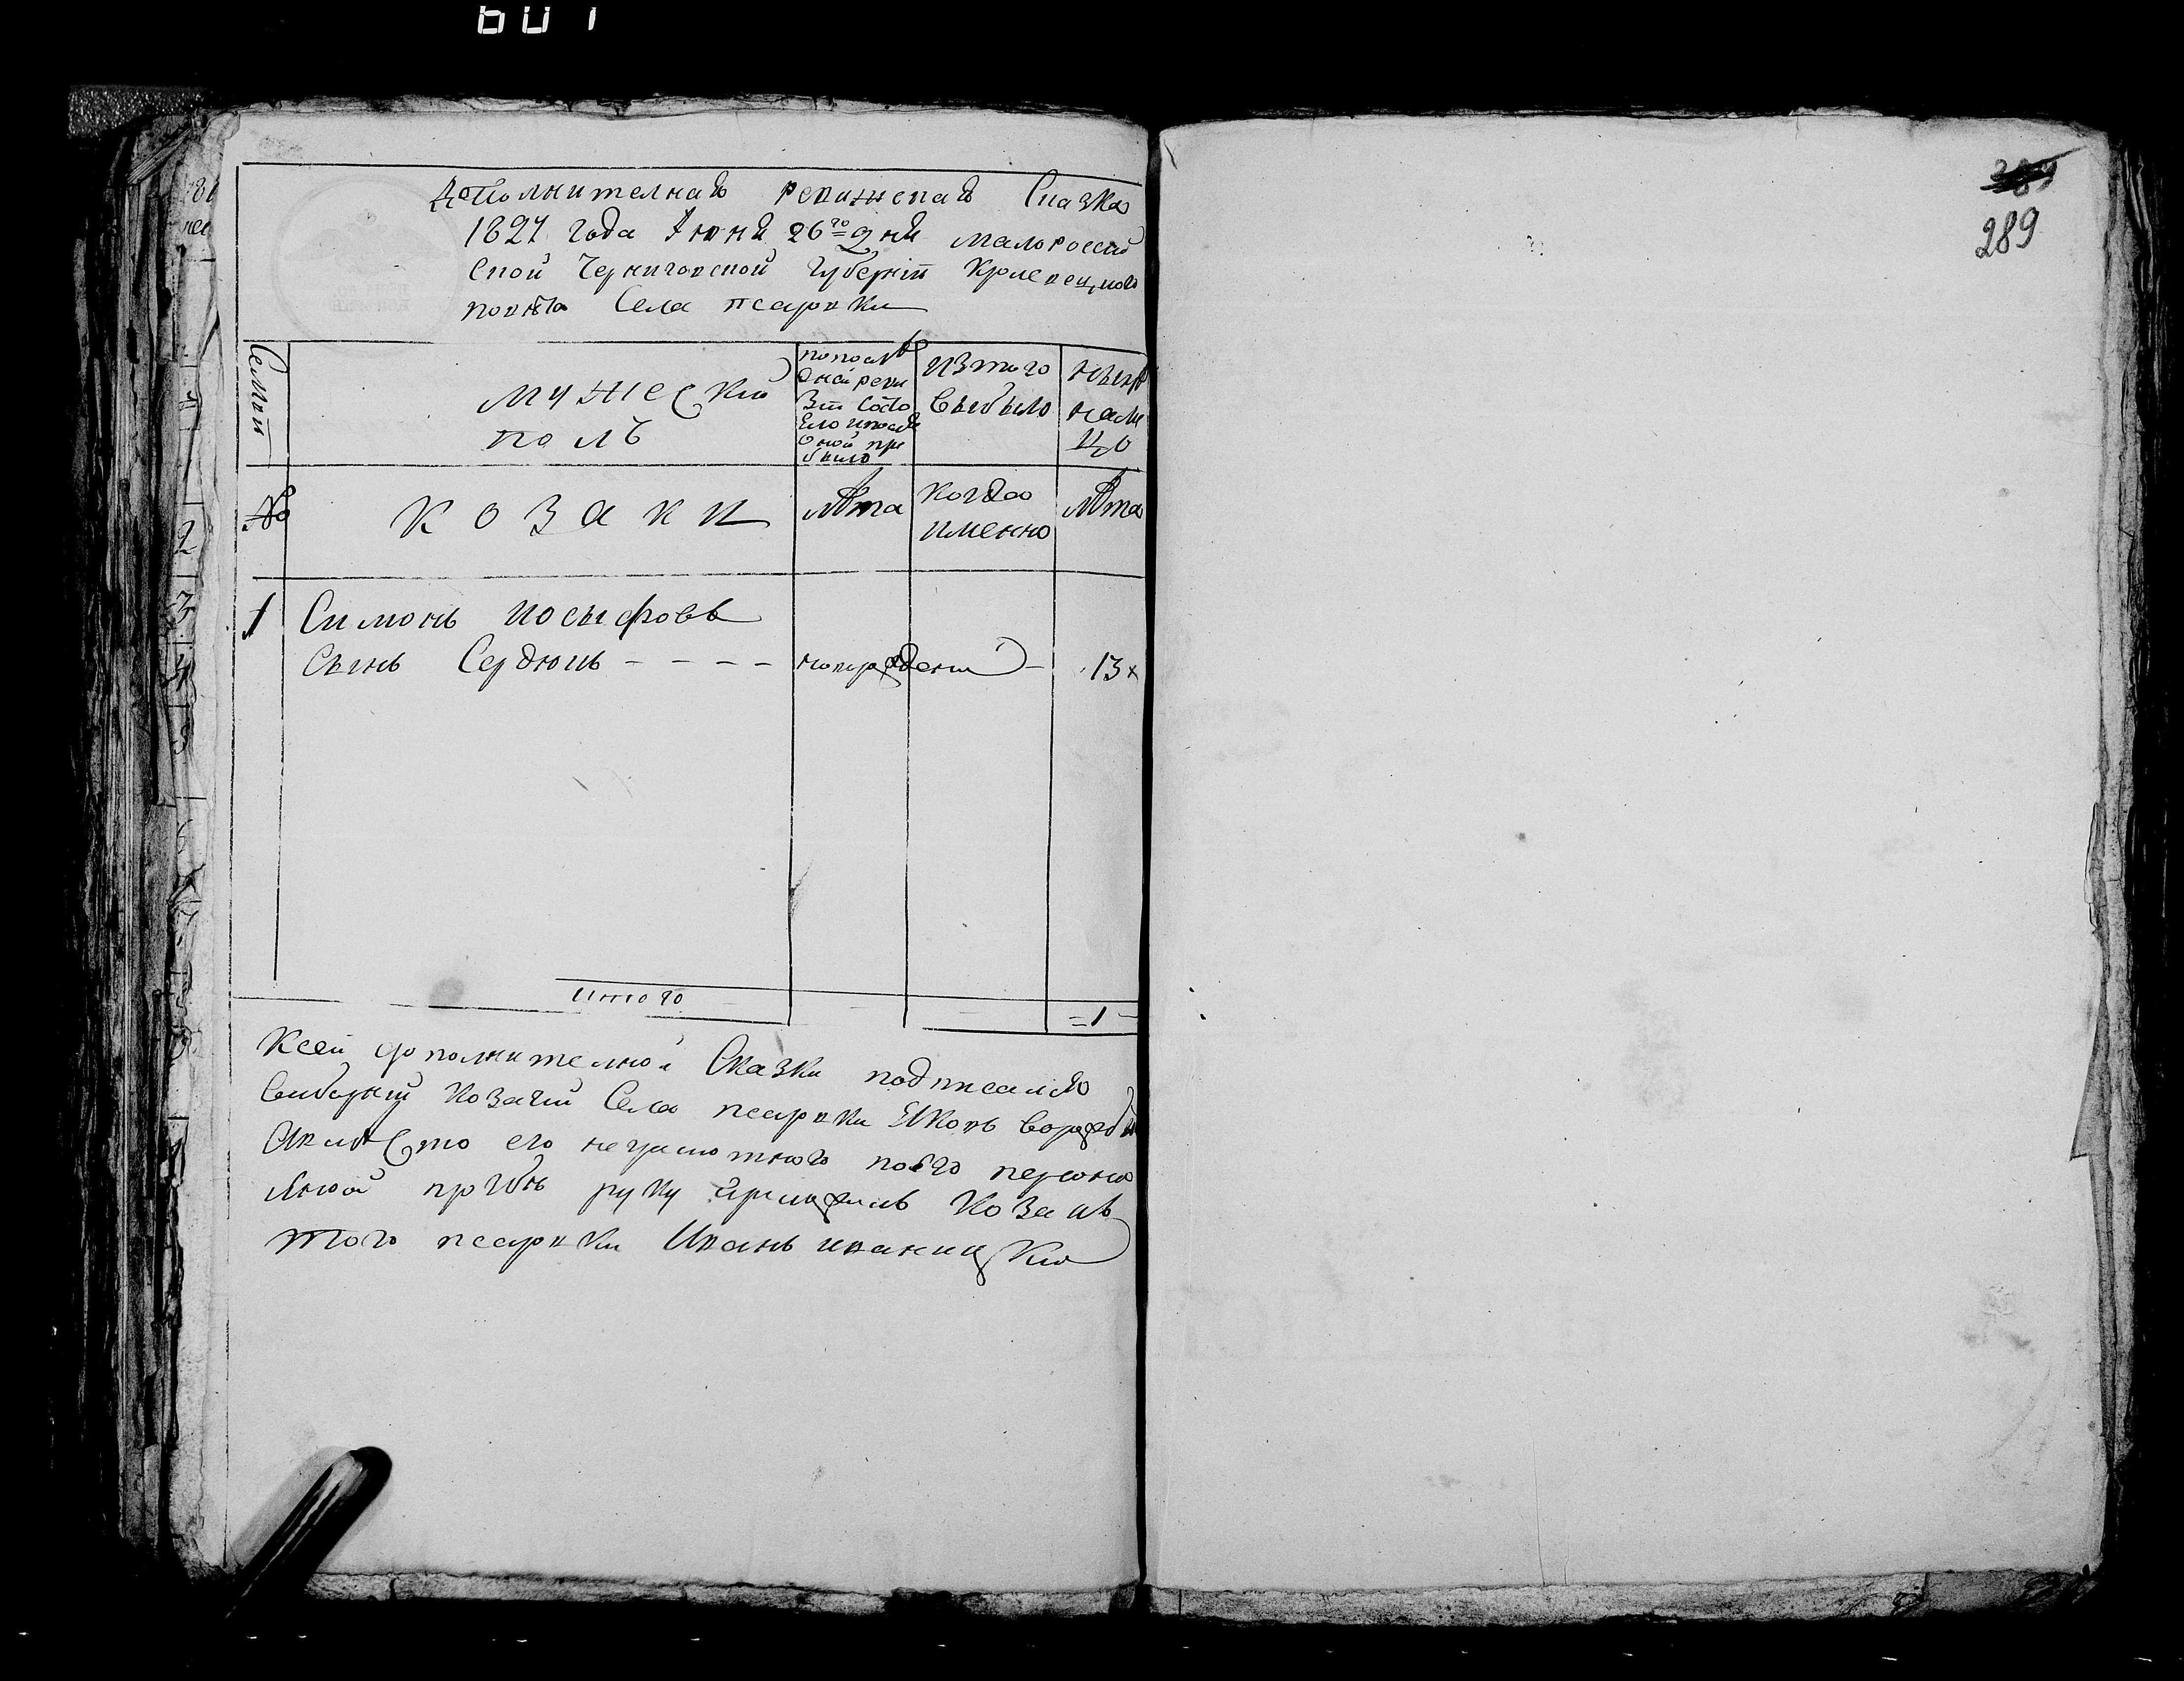 Дополнителная ревижская Сказка
1827 года Июня 26го дня малороссий
ской Черниговской Губернии Кролевецкого
повѣта Села псаровки
Семьи
мужеский
полъ
по послѣ
дней реви
зіи состо
яло и послѣ
оной при
было
из того
выбыло
нынѣ
нали
цо
№
козаки
лѣта
когда
именно
лѣта
1 Симонъ Иосыфовъ
Сынъ Сердюкъ - - - - новорожденый - 13
итого
=1-
Ксей дополнителной Сказки подписался
Выборный козачий Села псаровки Яковъ вороб
А вмѣсто его неграмотного по его персона
лной прозбѣ руку приложилъ козакъ
того псаровки Иванъ иваницкий
289
289